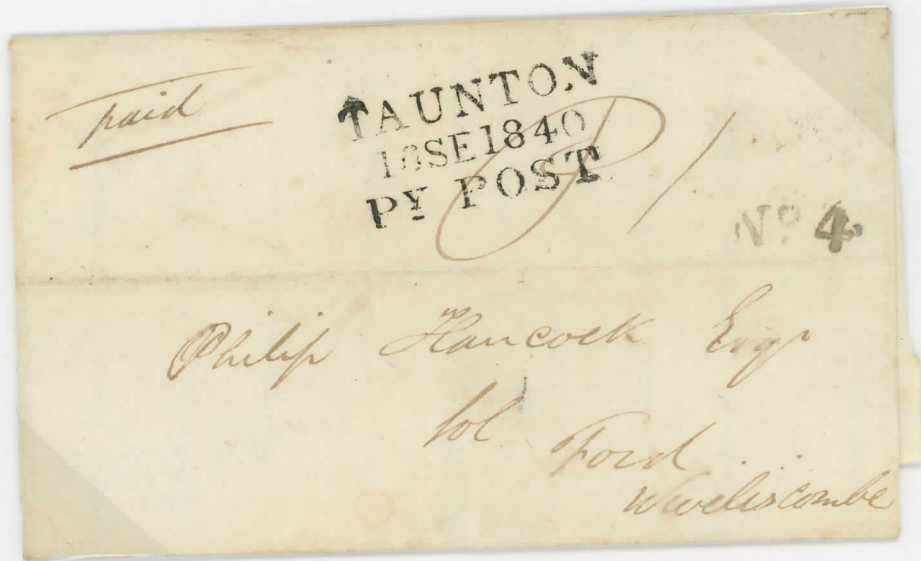 paid
TAUNTON
18SE1840
PY POST
P 1
No 4
Philip Hancock Esqr
Ford
Wiveliscombe